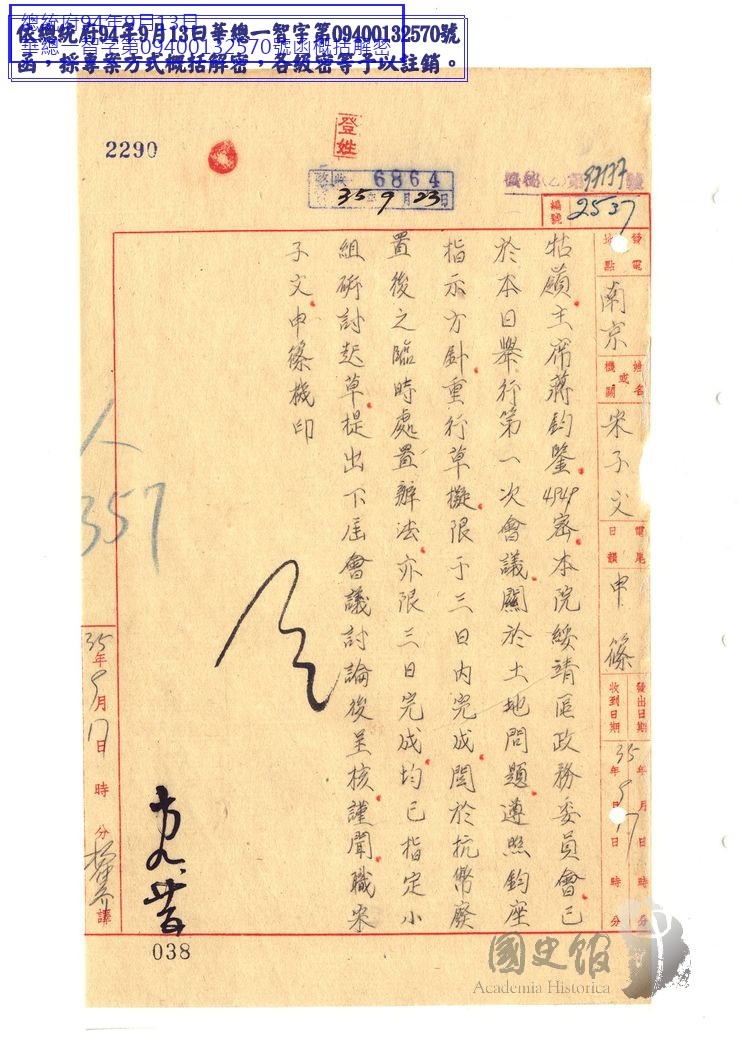 總統府94年9月13日
華總一智字第09400132570號函概括解密
依總統府94年9月13日華總一智字第09400132570號
函，採專案方式概括解密，各級密等予以註銷。
2290
登姓
6864
35年9月23日
機秘(乙)第97177號
編號
2537
發電地點
南京
姓名或機關
宋子文
電尾日韻
申篠
發出日期
收到日期
35年9月17日時分
年月日時分
牯嶺主席蔣鈞鑒4949密本院綏靖區政務委員會已
於本日舉行第一次會議關於土地問題遵照鈞座
指示方針重行草擬限于三日內完成關於抗幣廢
置後之臨時處置辦法亦限三日完成均已指定小
組研討起草提出下屆會議討論後呈核謹聞職宋
子文申篠機印
人
357
35年9月17日時分
譯
038
國史館
Academia Historica